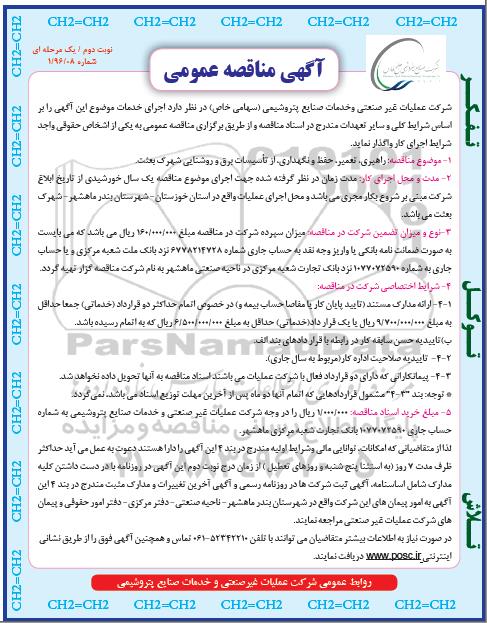 CH2=CH2 CH2=CH2 CH2=CH2 CH2=CH2 CH2=CH2
نوبت دوم / یک مرحله ای
شماره ۱/۹۶/۰۸
آگهی مناقصه عمومی
شرکت عملیات غیر صنعتی وخدمات صنایع پتروشیمی (سهامی خاص) در نظر دارد اجرای خدمات موضوع این آگهی را بر
اساس شرایط کلی و سایر تعهدات مندرج در اسناد مناقصه و از طریق برگزاری مناقصه عمومی به یکی از اشخاص حقوقی واجد
شرایط اجرای کار واگذار نماید.
۱- موضوع مناقصه: راهبری، تعمیر، حفظ و نگهداری، از تأسیسات برق و روشنایی شهرک بعثت.
۲- مدت و محل اجرای کار: مدت زمان در نظر گرفته شده جهت اجرای موضوع مناقصه یک سال خورشیدی از تاریخ ابلاغ
شرکت مبنی بر شروع بکار مجری می باشد و محل اجرای عملیات واقع در استان خوزستان - شهرستان بندر ماهشهر - شهرک
بعثت می باشد.
۳- نوع و میزان تضمین شرکت در مناقصه: میزان سپرده شرکت در مناقصه مبلغ ۱۶۰/۰۰۰/۰۰۰ ریال می باشد که می بایست
به صورت ضمانت نامه بانکی یا واریز وجه نقد به حساب جاری شماره ۶۷۷۸۲۱۴۷۲۸ نزد بانک ملت شعبه مرکزی و یا حساب
جاری به شماره ۱۰۷۷۰۷۲۵۹۰ نزد بانک تجارت شعبه مرکزی در ناحیه صنعتی ماهشهر به نام شرکت مناقصه گزار تهیه گردد.
۴- شرایط اختصاصی شرکت در مناقصه:
۴-۱- ارائه مدارک مستند (تایید پایان کار یا مفاصا حساب بیمه و) در خصوص اتمام حداکثر دو قرارداد (خدماتی) جمعا حداقل
به مبلغ ۹/۷۰۰/۰۰۰/۰۰۰ ریال یا یک قرار داد(خدماتی) حداقل به مبلغ ۶/۵۰۰/۰۰۰/۰۰۰ ریال که به اتمام رسیده باشد.
ب)تاییدیه حسن سابقه کار در رابطه با قراردادهای بند الف.
۴-۲- تاییدیه صلاحیت اداره کار(مربوط به سال جاری).
۴-۳- پیمانکارانی که دارای دو قرارداد فعال با شرکت عملیات می باشند اسناد مناقصه به آنها تحویل داده نخواهد شد.
* توجه: بند "۳-۴" مشمول قراردادهایی که اتمام آنها دو ماه پس از آخرین مهلت توزیع اسناد می باشد، نمی گردد.
۵- مبلغ خرید اسناد مناقصه: ۱/۰۰۰/۰۰۰ ریال را در وجه شرکت عملیات غیر صنعتی و خدمات صنایع پتروشیمی به شماره
حساب جاری ۱۰۷۷۰۷۲۵۹۰ بانک تجارت شعبه مرکزی ماهشهر.
لذا از متقاضیانی که امکانات، توانایی مالی و شرایط اولیه مندرج در بند ۴ این آگهی را دارا هستند دعوت به عمل می آید حداکثر
ظرف مدت ۷ روز (به استثنا پنج شنبه و روزهای تعطیل) از زمان درج نوبت دوم این آگهی در روزنامه با در دست داشتن کلیه
مدارک شامل اساسنامه، آگهی ثبت شرکت ها در روزنامه رسمی و آگهی آخرین تغییرات و مدارک مثبت مندرج در بند ۴ این
آگهی به امور پیمان های این شرکت واقع در شهرستان بندر ماهشهر - ناحیه صنعتی - دفتر مرکزی - دفتر امور حقوقی و پیمان
های شرکت عملیات غیر صنعتی مراجعه نمایند.
در صورت نیاز به اطلاعات بیشتر متقاضیان می توانند با تلفن ۵۲۳۴۲۲۱۰-۰۶۱ تماس و همچنین آگهی فوق را از طریق نشانی
اینترنتی www.posc.ir دریافت نمایند.
روابط عمومی شرکت عملیات غیرصنعتی و خدمات صنایع پتروشیمی
تفکر
توکل
تلاش
ParsNamadData
CH2=CH2 CH2=CH2 CH2=CH2 CH2=CH2 CH2=CH2